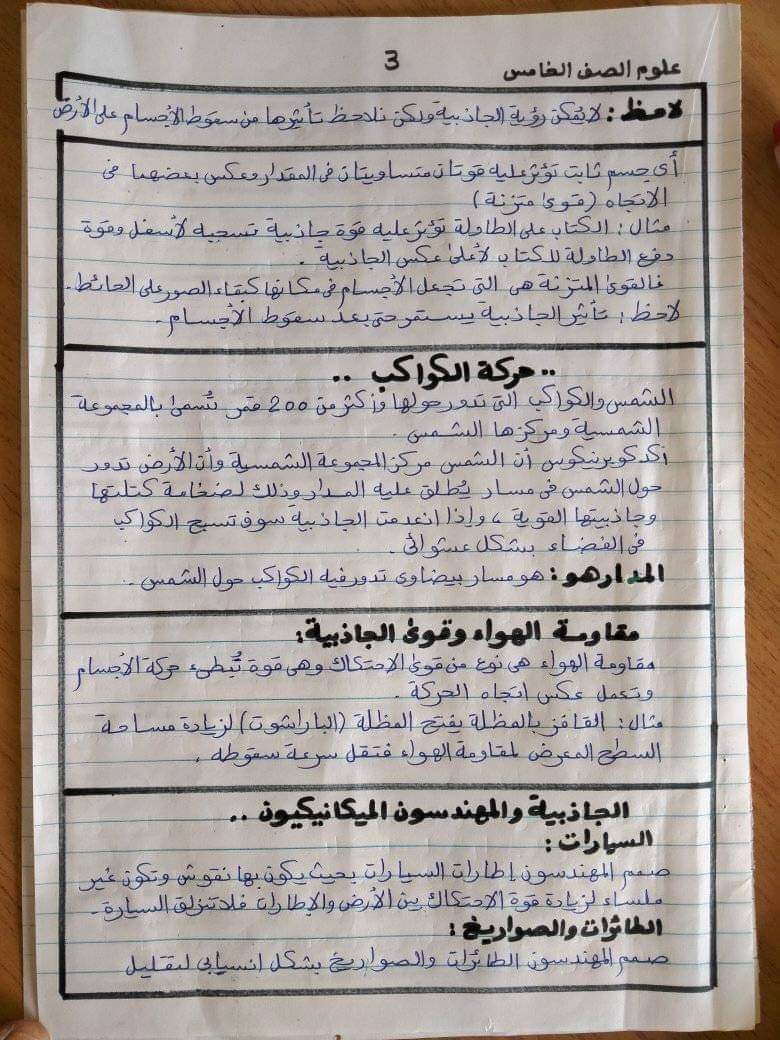 علوم الصف الخامس
3
لاحظ : لا يُمكن رؤية الجاذبية ولكن نلاحظ تأثيرها من سقوط الأجسام على الأرض
أى جسم ثابت تؤثر عليه قوتان متساويتان فى المقدار وعكس بعضهما فى
الاتجاه (قوى متزنة)
مثال : الكتاب على الطاولة تؤثر عليه قوة جاذبية تسحبه لأسفل وقوة
دفع الطاولة للكتاب لأعلى عكس الجاذبية .
فالقوى المتزنة هى التى تجعل الأجسام فى مكانها كبقاء الصور على الحائط.
لاحظ : تأثير الجاذبية يستمر حتى بعد سقوط الأجسام .
.. حركة الكواكب ..
الشمس والكواكب التى تدور حولها وأكثر من 200 قمر تُسمى بالمجموعة
الشمسية ومركزها الشمس .
أكد كوبرنيكوس أن الشمس مركز المجموعة الشمسية وأن الأرض تدور
حول الشمس فى مسار يُطلق عليه المدار وذلك لضخامة كتلتها
وجاذبيتها القوية ، وإذا انعدمت الجاذبية سوف تسبح الكواكب
فى الفضاء بشكل عشوائى .
المدار هو : هو مسار بيضاوى تدور فيه الكواكب حول الشمس .
مقاومة الهواء وقوى الجاذبية :
مقاومة الهواء هى نوع من قوى الاحتكاك وهى قوة تُبطىء حركة الأجسام
وتعمل عكس اتجاه الحركة .
مثال : القافز بالمظلة يفتح المظلة (الباراشوت) لزيادة مساحة
السطح المعرض لمقاومة الهواء فتقل سرعة سقوطه .
الجاذبية والمهندسون الميكانيكيون ..
السيارات :
صمم المهندسون إطارات السيارات بحيث يكون بها نقوش وتكون غير
ملساء لزيادة قوة الاحتكاك بين الأرض والإطارات فلا تنزلق السيارة .
الطائرات والصواريخ :
صمم المهندسون الطائرات والصواريخ بشكل انسيابى لتقليل